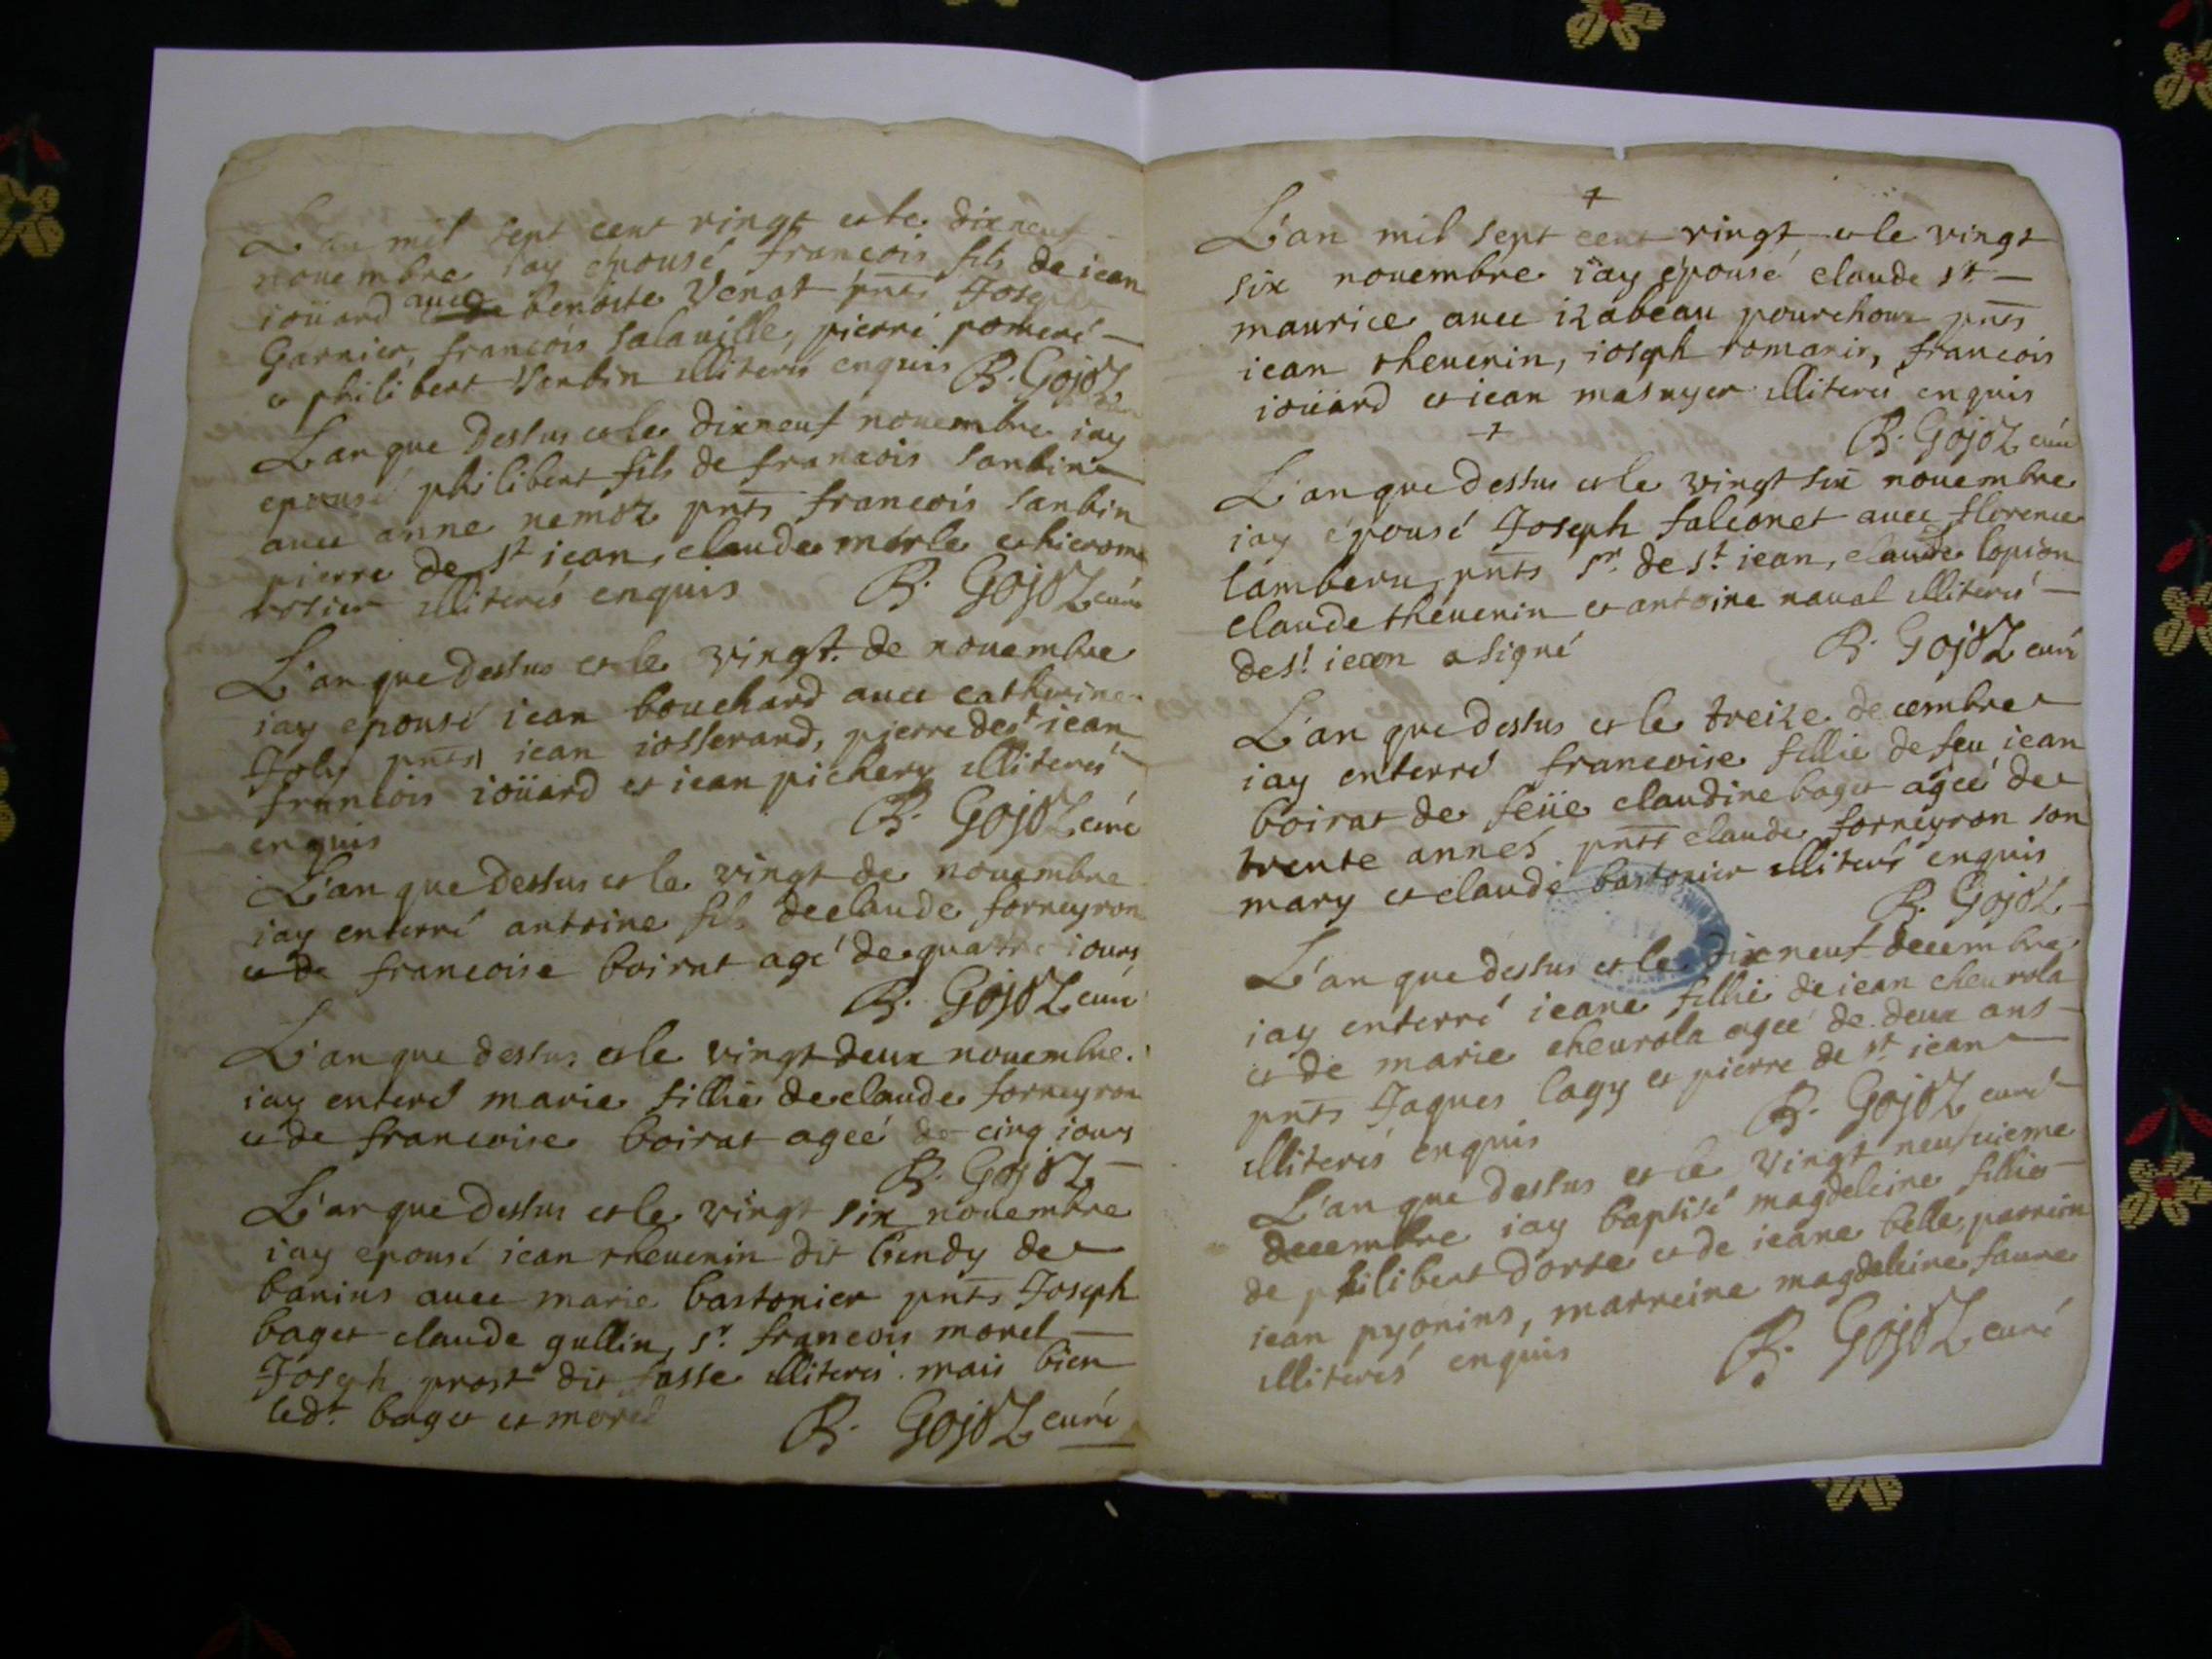 L'an mil sept cent vingt et le dixneuf
nouembre iay epousé francois fils de iean
ioüard auec benoite Venat pnts Joseph
Garnier, francois Salauille, pierre pomeré
et philibert Sanbin illiterés enquis B. Gojoz
curé
L'an que dessus et le dixneuf nouembre iay
epousé philibert fils de francois Sanbin
auec anne nemoz pnts francois Sanbin
pierre de st iean, claude merle et hierome
rosier illiterés enquis B. Gojoz curé
L'an que dessus et le vingt de nouembre
iay epousé iean bouchard auec catherine
Joly pnts iean iosserand, pierre de st iean
francois ioüard et iean pichery illiterés
enquis B. Gojoz curé
L'an que dessus et le vingt de nouembre
iay enterré antoine fils de claude forneyron
et de francoise boirat agé de quatre iours
B. Gojoz curé
L'an que dessus et le vingt deux nouembre
iay enteré marie fillie de claude forneyron
et de francoise boirat ageé de cinq iours
B. Gojoz
L'an que dessus et le vingt six nouembre
iay epousé iean theuenin dit bendy de
banins auec marie bastonier pnts Joseph
baget claude gullin, sr. francois morel
Joseph prost dit fasse illiterés mais bien
led.t baget et morel B. Gojoz curé
L'an mil sept cent vingt et le vingt
six nouembre iay épousé claude st
maurice auec izabeau pourchoux pnts
iean theuenin, ioseph romanin, francois
ioüard et iean masuyer illiterés enquis
B. Gojoz curé
L'an que dessus et le vingt six nouembre
iay épousé Joseph falconet auec florence
lamberu, pnts sr. de st. iean, claude lopion
claude theuenin et antoine naual illiterés
de st. iean a signé B. Gojoz curé
L'an que dessus et le treize decembre
iay enterré francoise fillie de feu iean
boirat de feüe claudine baget ageé de
trente annés pnts claude forneyron son
mary et claude bastonier illiterés enquis
B. Gojoz
L'an que dessus et le dixneuf decembre
iay enterré ieane fillie de iean cheurola
et de marie cheurola ageé de deux ans
pnts Jaques lagy et pierre de st iean
illiterés enquis B. Gojoz curé
L'an que dessus et le vingt neufuieme
decembre iay baptisé magdeleine fillie
de philibert dorte et de ieane belle, parrein
iean pyonins, marreine magdeleine faure
illiterés enquis B. Gojoz curé